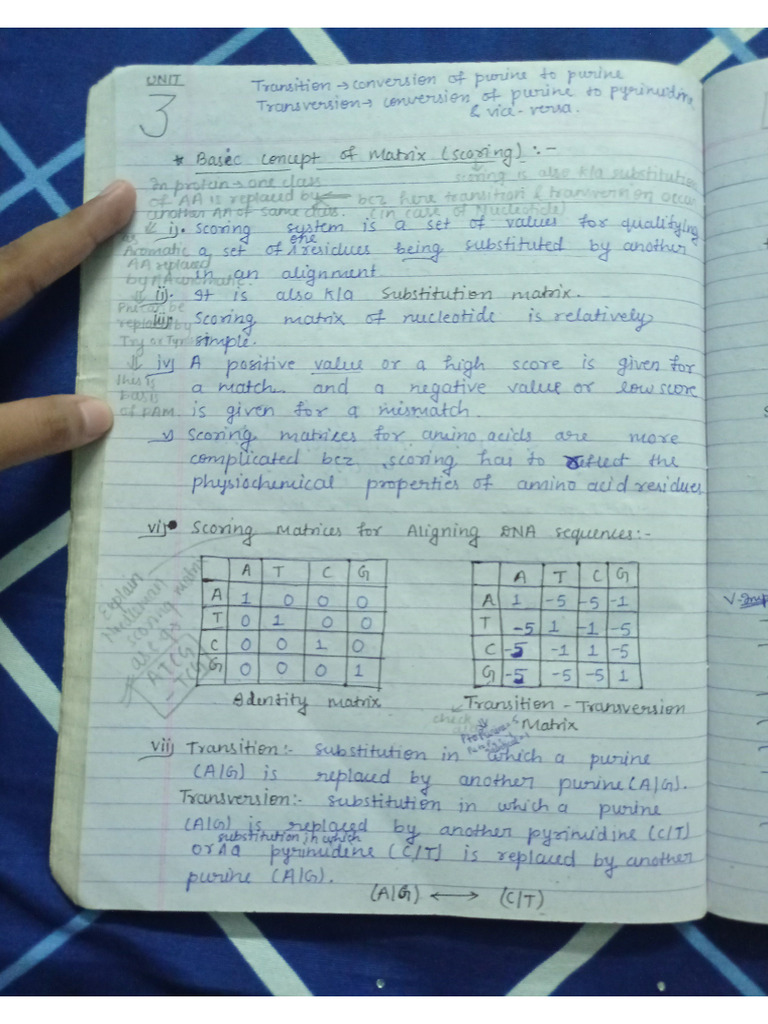 UNIT
3
Transition → conversion of purine to purine
Transversion → conversion of purine to pyrimidine
& vice-versa.
* Basic concept of Matrix (scoring) :-
scoring is also k/a substitution
In protein → one class
of AA is replaced by ← bcz here transition & transversion occur
another AA of same class. (in case of Nucleotide)
i). Scoring system is a set of values for qualifying
Aromatic a set of one residues being substituted by another
AA replaced in an alignment
by AA aromatic.
ii). It is also k/a Substitution matrix.
Phe can be
iii). Scoring matrix of nucleotide is relatively
replaced by
Try or Tyr simple.
iv) A positive value or a high score is given for
this is a match and a negative value or low score
basis
of PAM. is given for a mismatch.
v) Scoring matrices for amino acids are more
complicated bcz scoring has to reflect the
physiochemical properties of amino acid residues
vi) Scoring Matrices for Aligning DNA sequences:-
Explain
scoring matrix
ATCG
TCG
A T C G
A 1 0 0 0
T 0 1 0 0
C 0 0 1 0
G 0 0 0 1
Identity Matrix
A T C G
A 1 -5 -5 -1
T -5 1 -1 -5
C -5 -1 1 -5
G -5 -5 -5 1
Transition - Transversion
check
Matrix
vii) Transition:- Substitution in which a purine
(A/G) is replaced by another purine (A/G).
Transversion:- Substitution in which a purine
(A/G) is replaced by another pyrimidine (C/T)
substitution in which
or a pyrimidine (C/T) is replaced by another
purine (A/G).
(A/G) ⟷ (C/T)